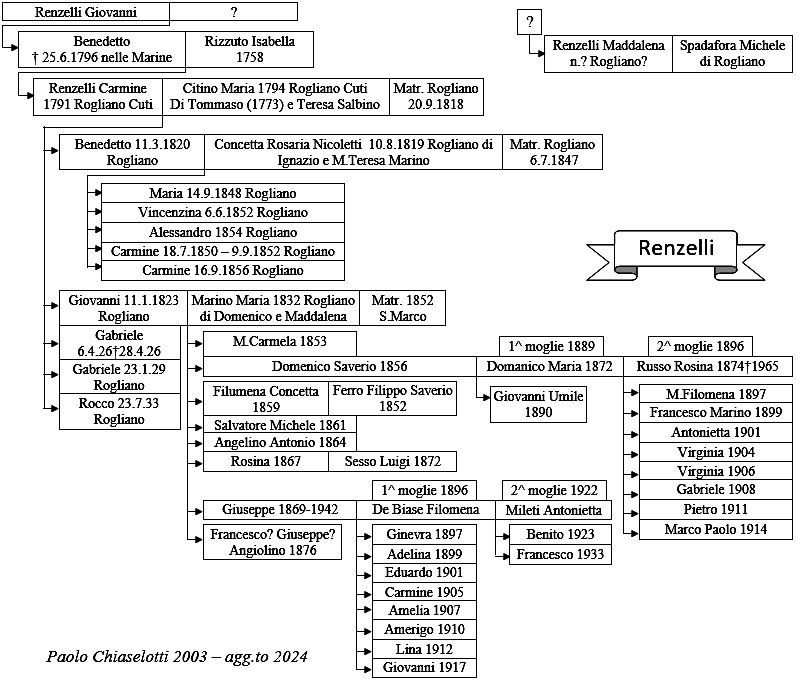 Renzelli Giovanni ?
?
Benedetto Rizzuto Isabella
† 25.6.1796 nelle Marine 1758
Renzelli Maddalena Spadafora Michele
n.? Rogliano? di Rogliano
Renzelli Carmine Citino Maria 1794 Rogliano Cuti Matr. Rogliano
1791 Rogliano Cuti Di Tommaso (1773) e Teresa Salbino 20.9.1818
Benedetto 11.3.1820 Concetta Rosaria Nicoletti 10.8.1819 Rogliano di Matr. Rogliano
Rogliano Ignazio e M.Teresa Marino 6.7.1847
Maria 14.9.1848 Rogliano
Vincenzina 6.6.1852 Rogliano
Alessandro 1854 Rogliano
Carmine 18.7.1850 – 9.9.1852 Rogliano
Carmine 16.9.1856 Rogliano
Renzelli
Giovanni 11.1.1823 Marino Maria 1832 Rogliano Matr. 1852
Rogliano di Domenico e Maddalena S.Marco
Gabriele
6.4.26†28.4.26
Gabriele 23.1.29
Rogliano
Rocco 23.7.33
Rogliano
M.Carmela 1853
1^ moglie 1889 2^ moglie 1896
Domenico Saverio 1856 Domanico Maria 1872 Russo Rosina 1874†1965
Giovanni Umile
1890
M.Filomena 1897
Francesco Marino 1899
Antonietta 1901
Virginia 1904
Virginia 1906
Gabriele 1908
Pietro 1911
Marco Paolo 1914
Filumena Concetta Ferro Filippo Saverio
1859 1852
Salvatore Michele 1861
Angelino Antonio 1864
Rosina 1867 Sesso Luigi 1872
1^ moglie 1896 2^ moglie 1922
Giuseppe 1869-1942 De Biase Filomena Mileti Antonietta
Francesco? Giuseppe?
Angiolino 1876
Ginevra 1897
Adelina 1899
Eduardo 1901
Carmine 1905
Amelia 1907
Amerigo 1910
Lina 1912
Giovanni 1917
Benito 1923
Francesco 1933
Paolo Chiaselotti 2003 – agg.to 2024